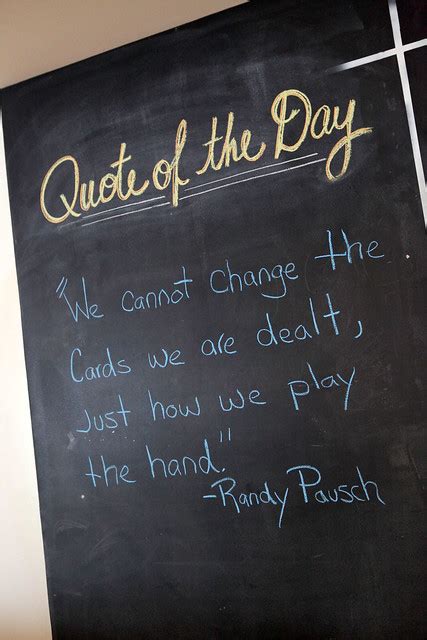 Quote of the Day
"We cannot change the
Cards we are dealt,
Just how we play
the hand."
-Randy Pausch